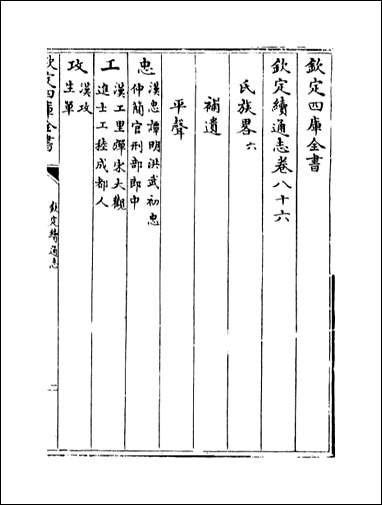 欽定四庫全書
欽定續通志卷八十六
氏族畧六
補遺
平聲
忠
漢忠譚明洪武初忠
仲簡官刑部郎中
工
漢工里彈宋大觀
進士工接成都人
攻
漢攻
生單
欽定四庫全書
欽定續通志